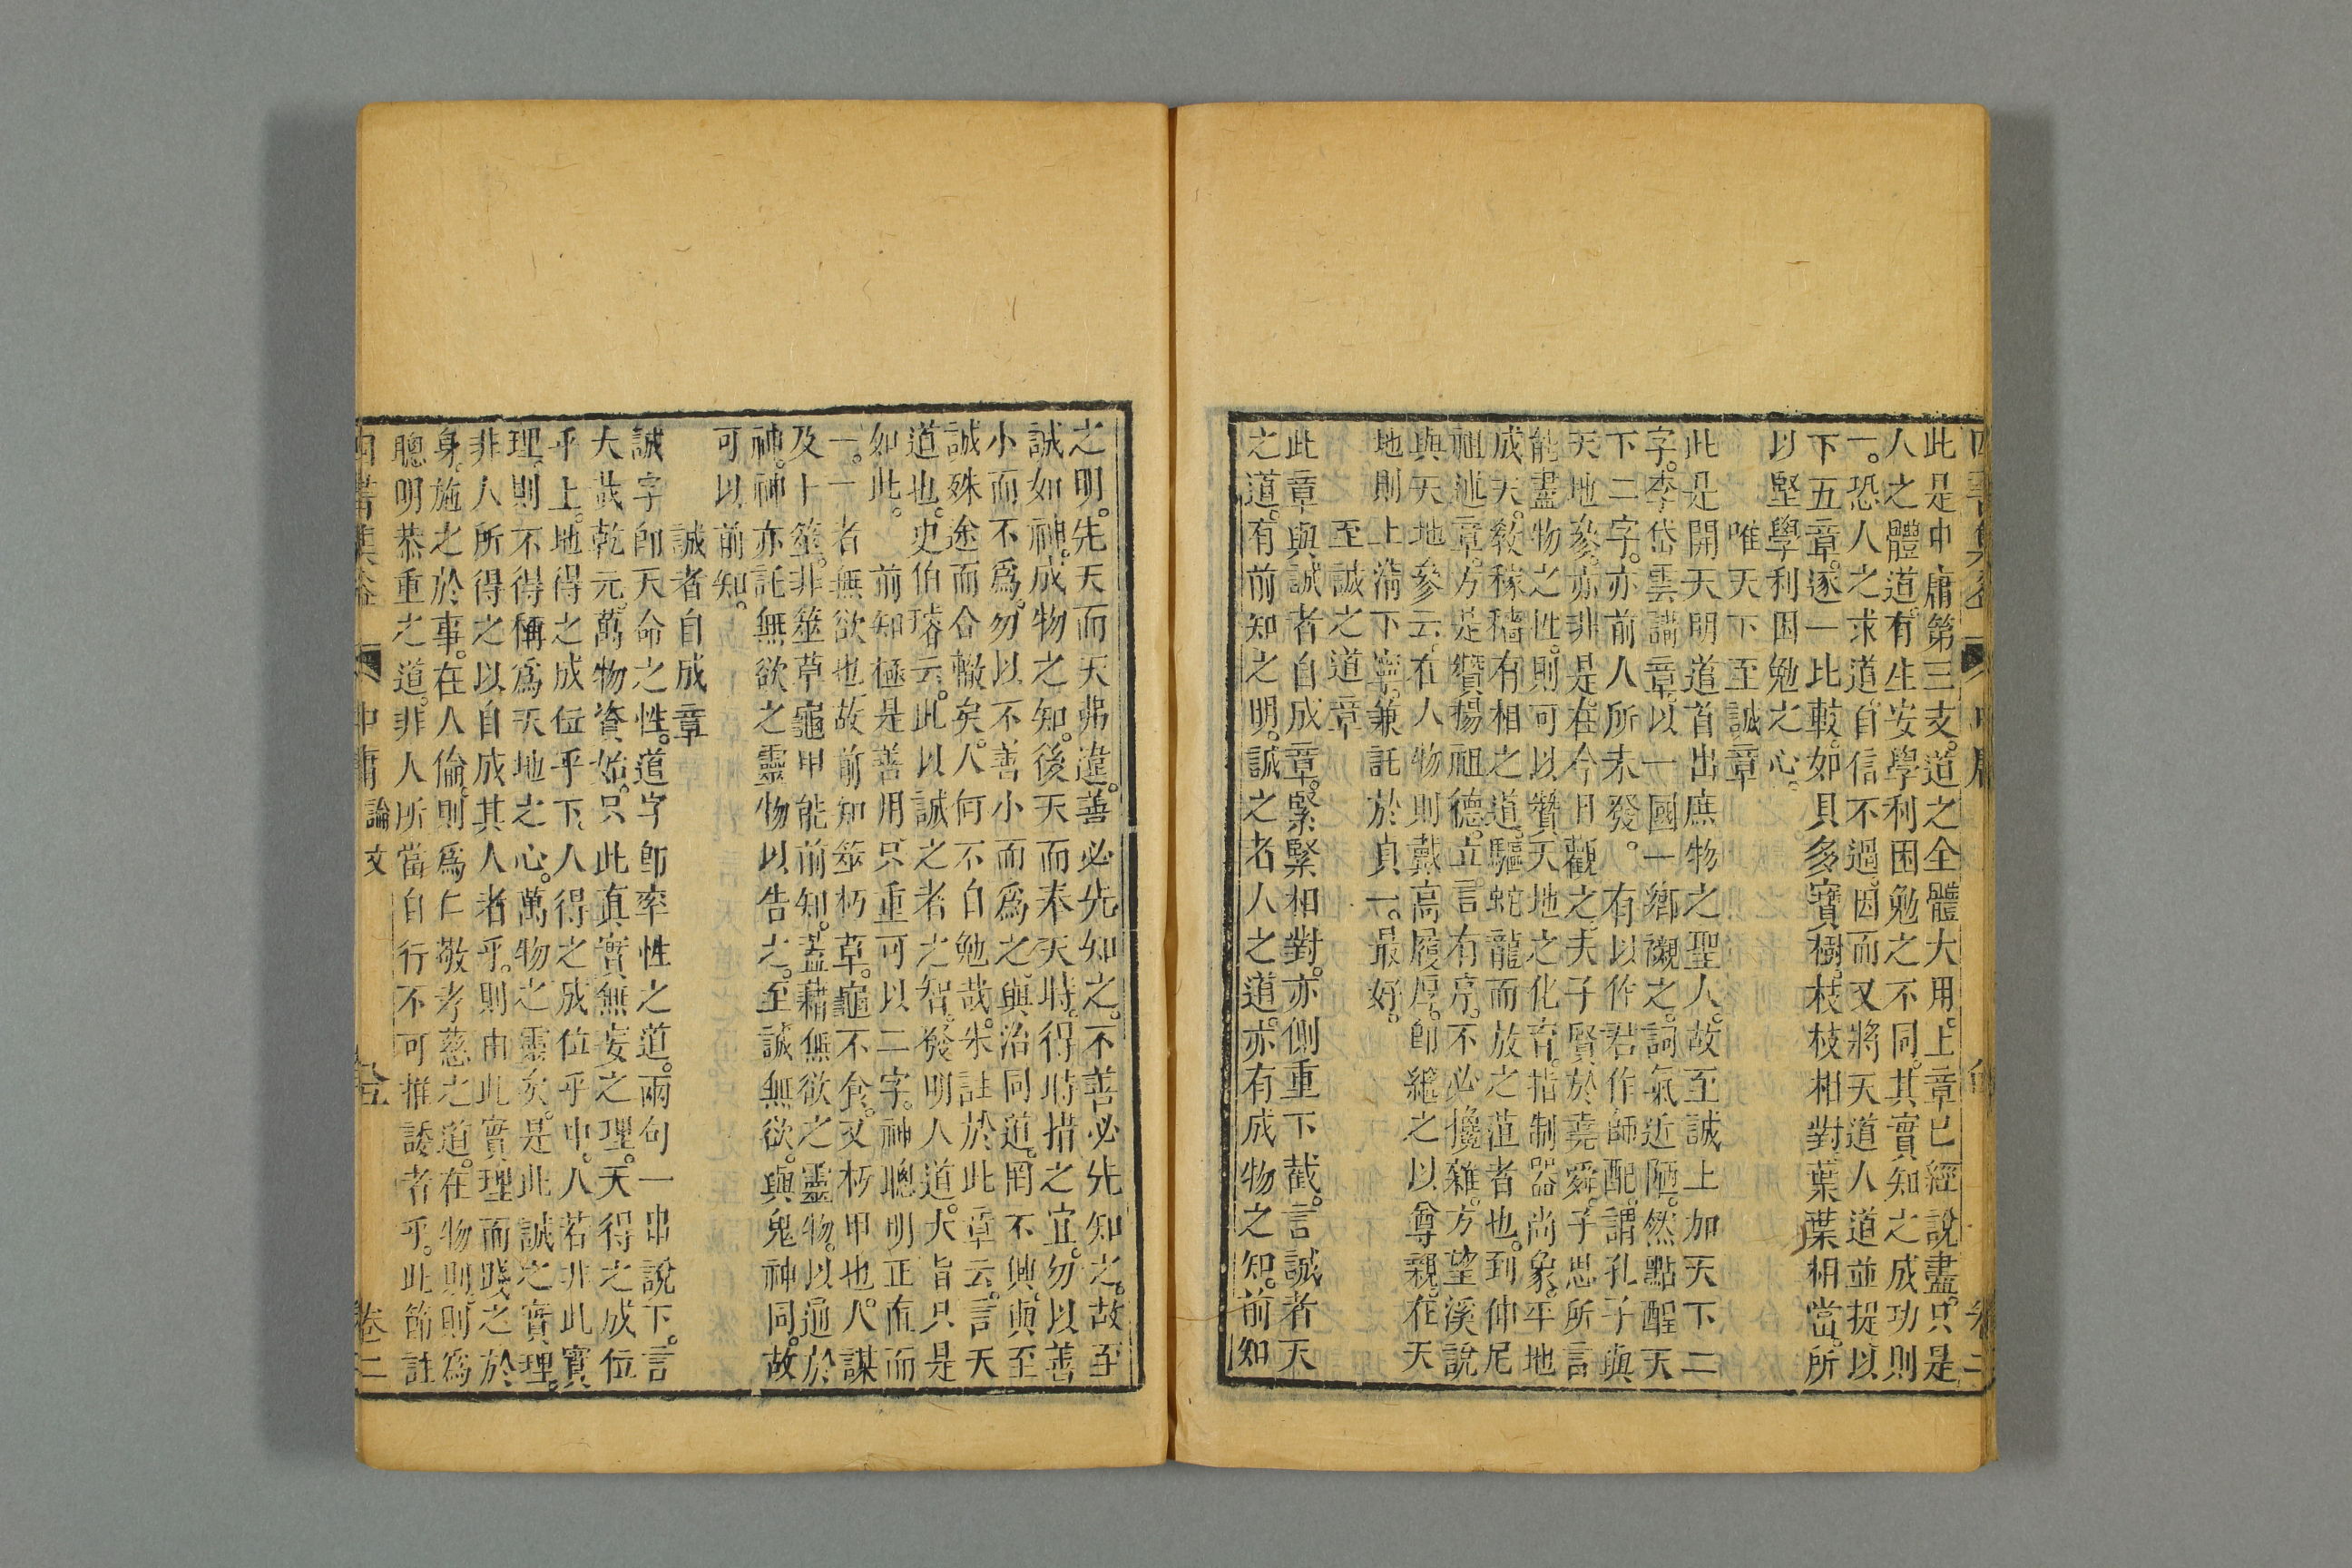 此是中庸第三支。道之全體大用。上章已經說盡。只是
人之體道。有生安學利困勉之不同。其實知之成功則
一。恐人之求道。自信不過。因而又將天道人道並提。以
下五章。逐一比較。如貝多寶樹。枝枝相對。葉葉相當。所
以堅學利困勉之心。
唯天下至誠章
此是開天明道首出庶物之聖人。故至誠上加天下二
字。李岱雲講章。以一國一鄉襯之。詞氣近陋。然點醒天
下二字。亦前人所未發。有以作君作師配。謂孔子與
天地參。亦非是。在今日觀之。夫子賢於堯舜。子思所言
能盡物之性。則可以贊天地之化育。指制器尚象。平地
成天。教稼穡有相之道。驅蛇龍而放之菹者也。到仲尼
祖述章。方是贊揚祖德。立言有序。不必攙雜。方望溪說
與天地參云。在人物則戴高履厚。卽繼之以尊親。在天
地則上淸下寧。兼託於貞一。最好。
至誠之道章
此章與誠者自成章。緊緊相對。亦側重下截。言誠者天
之道。有前知之明。誠之者人之道。亦有成物之知。前知
之明。先天而天弗違。善必先知之。不善必先知之。故至
誠如神。成物之知。後天而奉天時。得時措之宜。勿以善
小而不爲。勿以不善小而爲之。與治同道。罔不興。與至
誠殊途而合轍矣。人何不自勉哉。朱註於此章云。言天
道也。史伯璿云。此以誠之者之智。發明人道。大旨只是
如此。前知極是善用。只重可以二字。神聰明正直而
一。一者無欲也。故前知筮朽草。龜不食。又朽甲也。人謀
及卜筮。非筮草龜甲能前知。蓋藉無欲之靈物。以通於
神。神亦託無欲之靈物以告之。至誠無欲。與鬼神同。故
可以前知。
誠者自成章
誠字卽天命之性。道字卽率性之道。兩句一串說下。言
大哉乾元。萬物資始。只此真實無妄之理。天得之成位
乎上。地得之成位乎下。人得之成位乎中。人若非此實
理。則不得稱爲天地之心。萬物之靈矣。是此誠之實理。
非人所得之以自成其人者乎。則由此實理而踐之於
身。施之於事。在人倫。則爲仁敬孝慈之道。在物則。則爲
聰明恭重之道。非人所當自行不可推諉者乎。此節註
中庸 論文 卷二